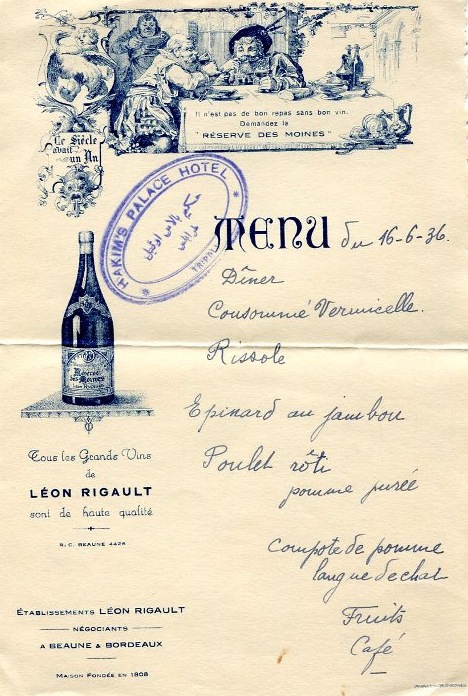 Il n'est pas de bon repas sans bon vin.
Demandez la
"RÉSERVE DES MOINES"
Le Siècle
avait
un An
HAKIM'S PALACE HOTEL
حكيم بالاس اوتيل
طرابلس
TRIPOLI
MENU du 16-6-36.
Dîner
Consommé Vermicelle.
Rissole
Epinard au jambon
Poulet rôti
pomme purée
Compote de pomme
langue de chat
Fruits
Café
Réserve
des Moines
Léon Rigault
Tous les Grands Vins
de
LÉON RIGAULT
sont de haute qualité
R. C. BEAUNE 4426
ÉTABLISSEMENTS LÉON RIGAULT
NÉGOCIANTS
A BEAUNE & BORDEAUX
MAISON FONDÉE EN 1808